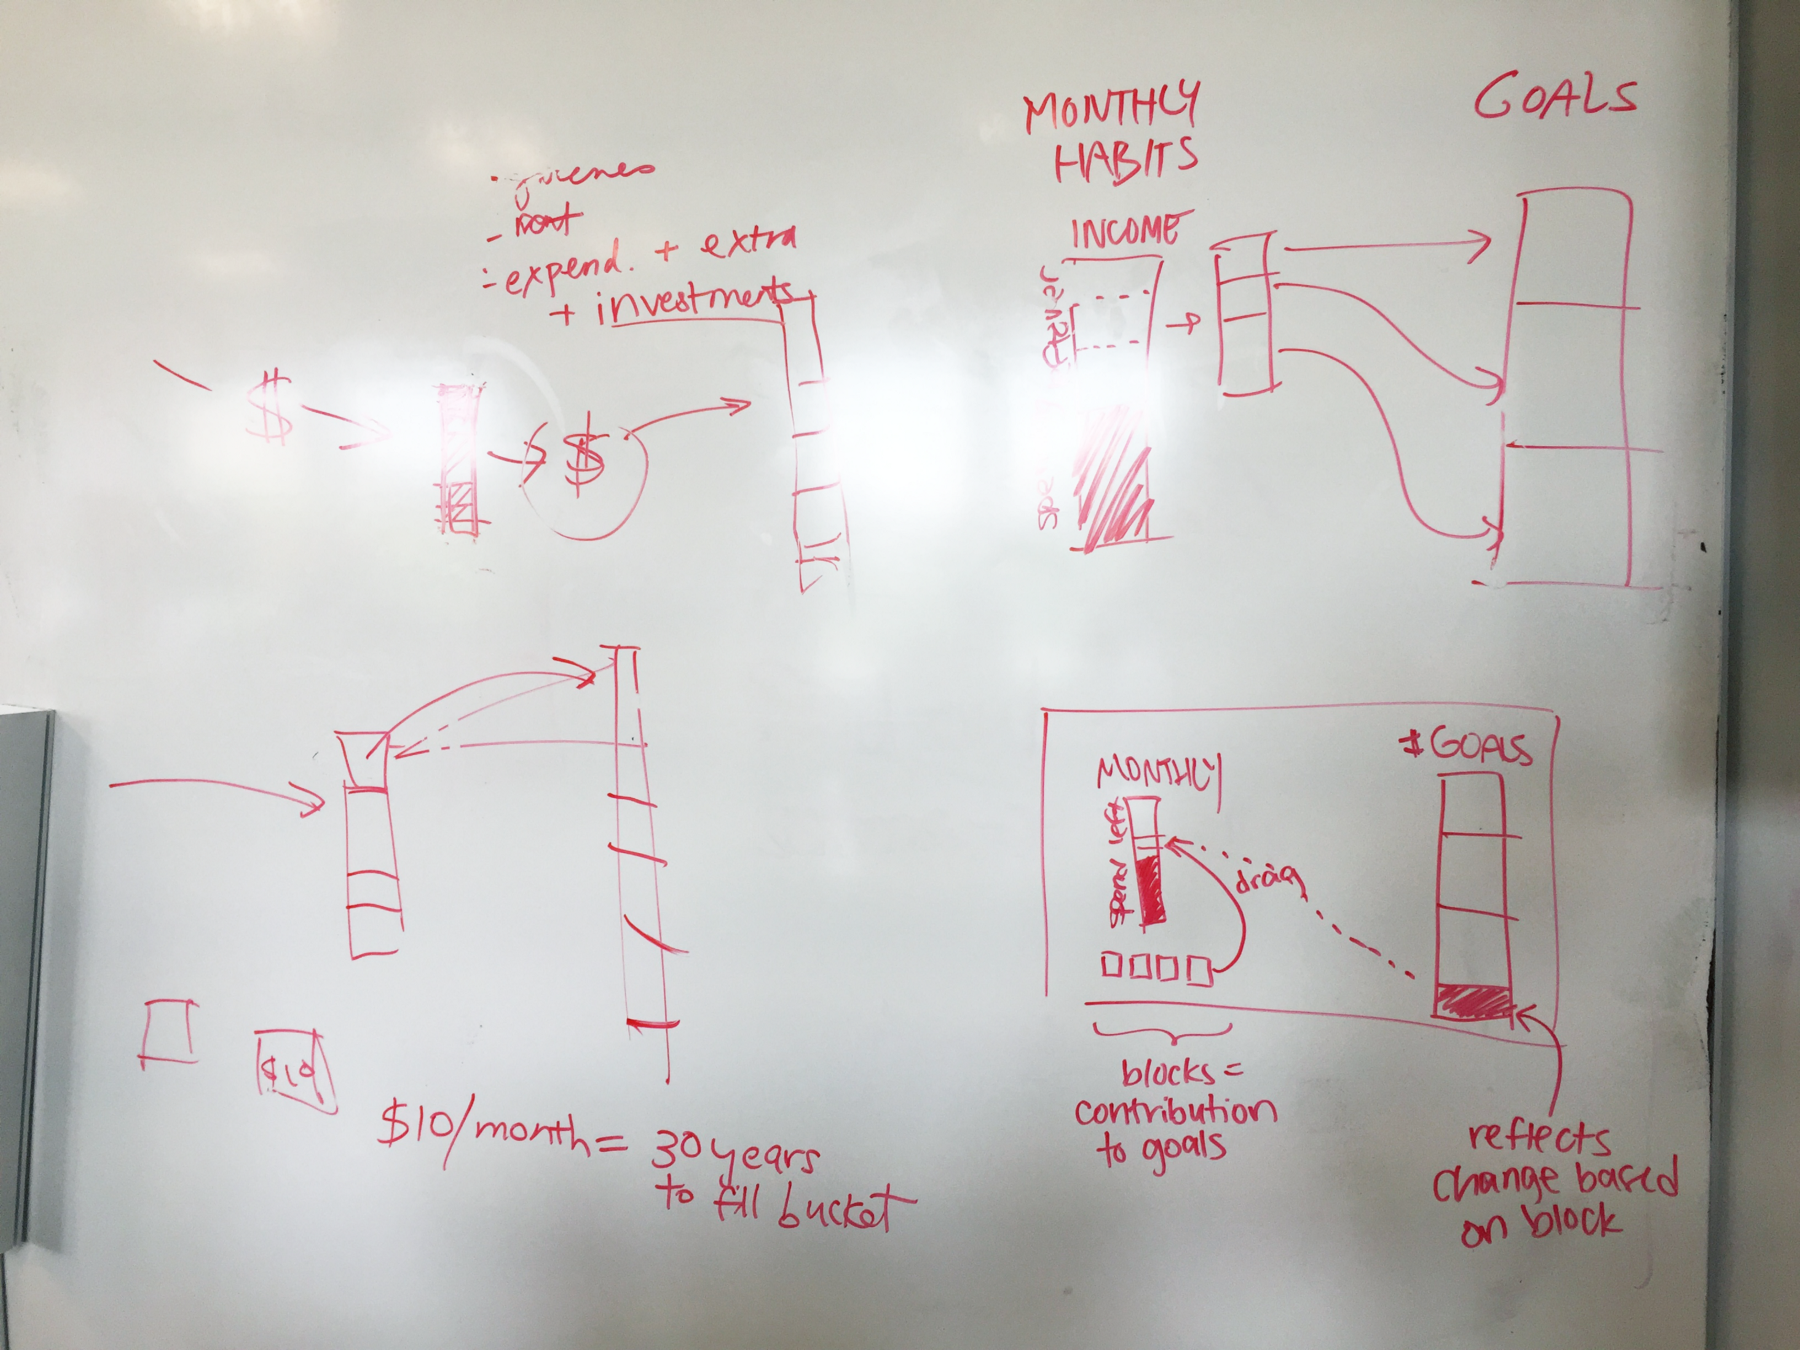 - rent
- expend. + extra
+ investments
$
$
$10
$10/month = 30 years
to fill bucket
MONTHLY
HABITS
INCOME
spend
GOALS
MONTHLY
spend left
drag
$ GOALS
blocks =
contribution
to goals
reflects
change based
on block